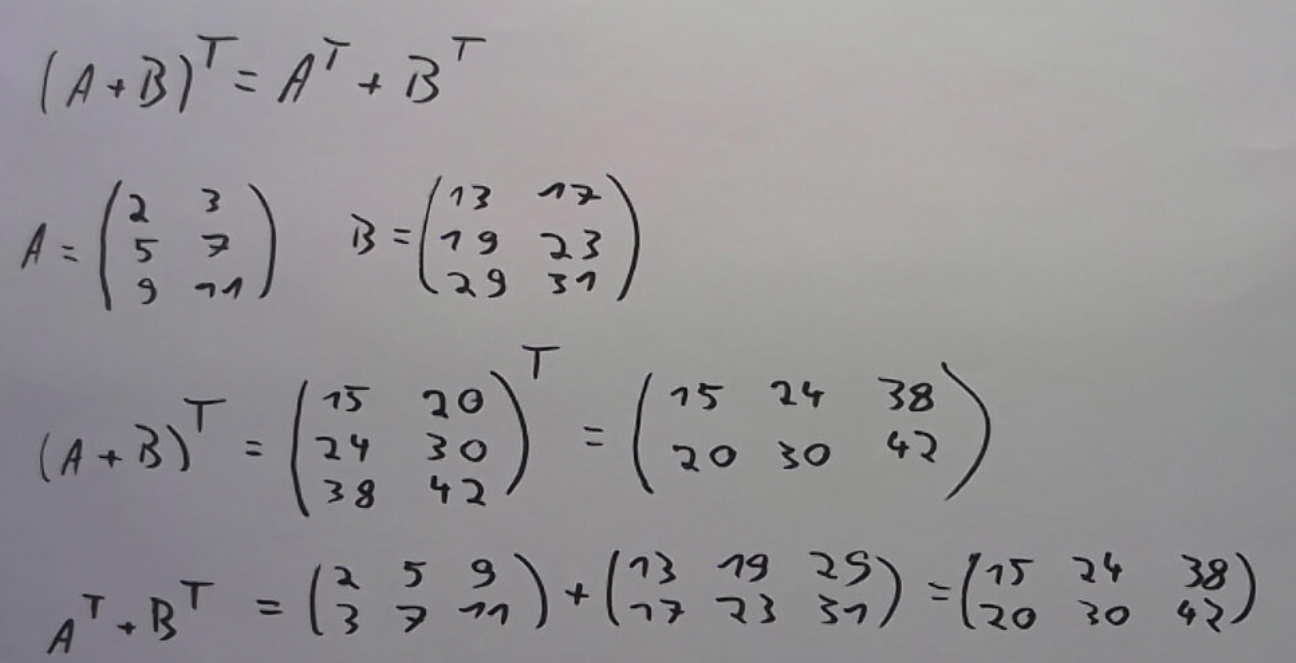 (A+B)^T = A^T + B^T
A = (2 3; 5 7; 9 11) B = (13 17; 19 23; 29 31)
(A+B)^T = (15 20; 24 30; 38 42)^T = (15 24 38; 20 30 42)
A^T + B^T = (2 5 9; 3 7 11) + (13 19 29; 17 23 31) = (15 24 38; 20 30 42)